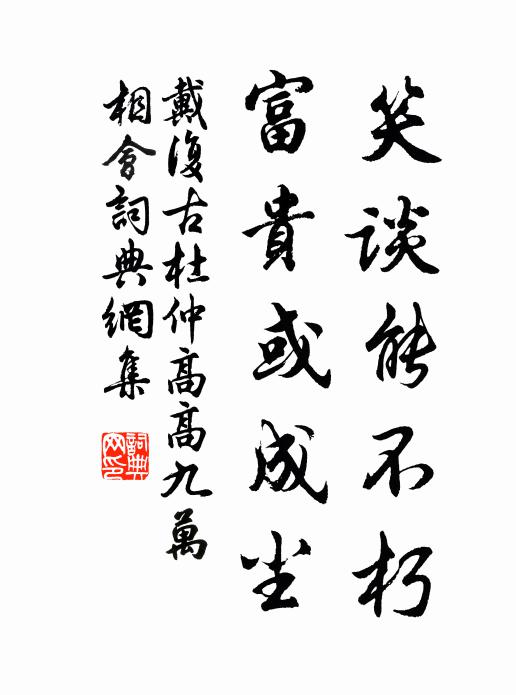 笑談能不朽
富貴或成尘
戴復古杜仲高高九萬
相會詞典網集
詞典网印